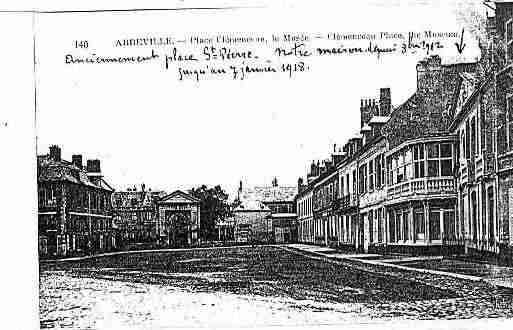 140 ABBEVILLE. — Place Clémenceau, le Musée. — Clémenceau Place, the Museum.
Anciennement place St Pierre. Notre maison depuis 3bre 1912
jusqu'au 7 janvier 1918.